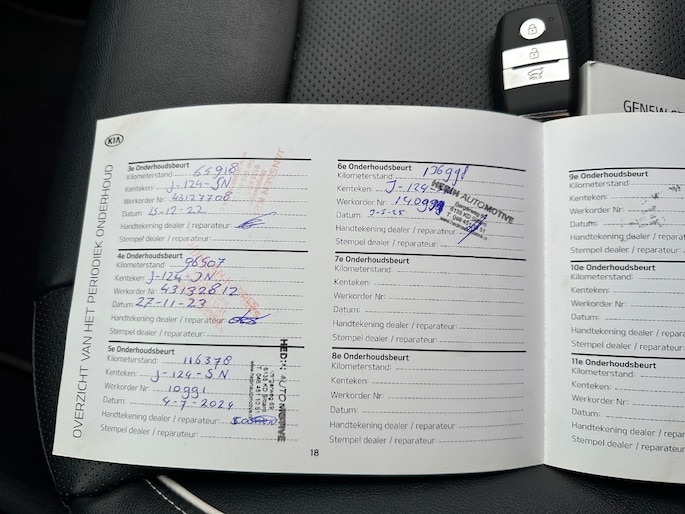 KIA
OVERZICHT VAN HET PERIODIEK ONDERHOUD
3e Onderhoudsbeurt
Kilometerstand: 65918
Kenteken: J-124-SN
Werkorder Nr: 43127708
Datum: 15-12-22
Handtekening dealer / reparateur:
Stempel dealer / reparateur:
4e Onderhoudsbeurt
Kilometerstand: 96507
Kenteken: J-124-JN
Werkorder Nr: 43132812
Datum: 27-11-23
Handtekening dealer / reparateur:
Stempel dealer / reparateur:
5e Onderhoudsbeurt
Kilometerstand: 116378
Kenteken: J-124-SN
Werkorder Nr:
Datum: 4-7-2024
Handtekening dealer / reparateur:
Stempel dealer / reparateur:
HEDIN AUTOMOTIVE
18
6e Onderhoudsbeurt
Kilometerstand:
Kenteken: J-124
Werkorder Nr:
Datum:
Handtekening dealer / reparateur:
Stempel dealer / reparateur:
HEDIN AUTOMOTIVE
7e Onderhoudsbeurt
Kilometerstand:
Kenteken:
Werkorder Nr:
Datum:
Handtekening dealer / reparateur:
Stempel dealer / reparateur:
8e Onderhoudsbeurt
Kilometerstand:
Kenteken:
Werkorder Nr:
Datum:
Handtekening dealer / reparateur:
Stempel dealer / reparateur:
9e Onderhoudsbeurt
Kilometerstand:
Kenteken:
Werkorder Nr:
Datum:
Handtekening dealer /
Stempel dealer / repara
10e Onderhoudsbeurt
Kilometerstand:
Kenteken:
Werkorder Nr:
Datum:
Handtekening dealer / r
Stempel dealer / repara
11e Onderhoudsbeurt
Kilometerstand:
Kenteken:
Werkorder Nr:
Datum:
Handtekening dealer / r
Stempel dealer / repara